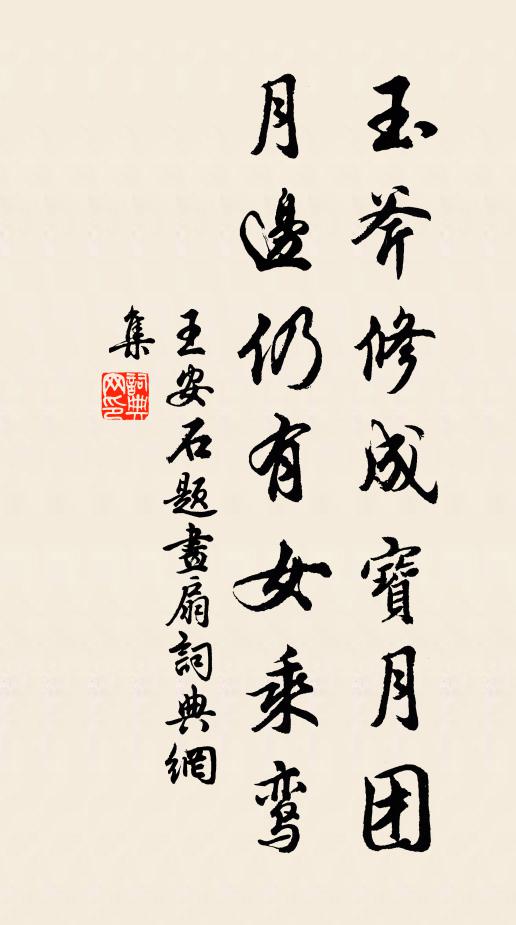 玉斧修成寶月团
月邊仍有女乘鸾
王安石题畫扇詞典網
集
詞典网印